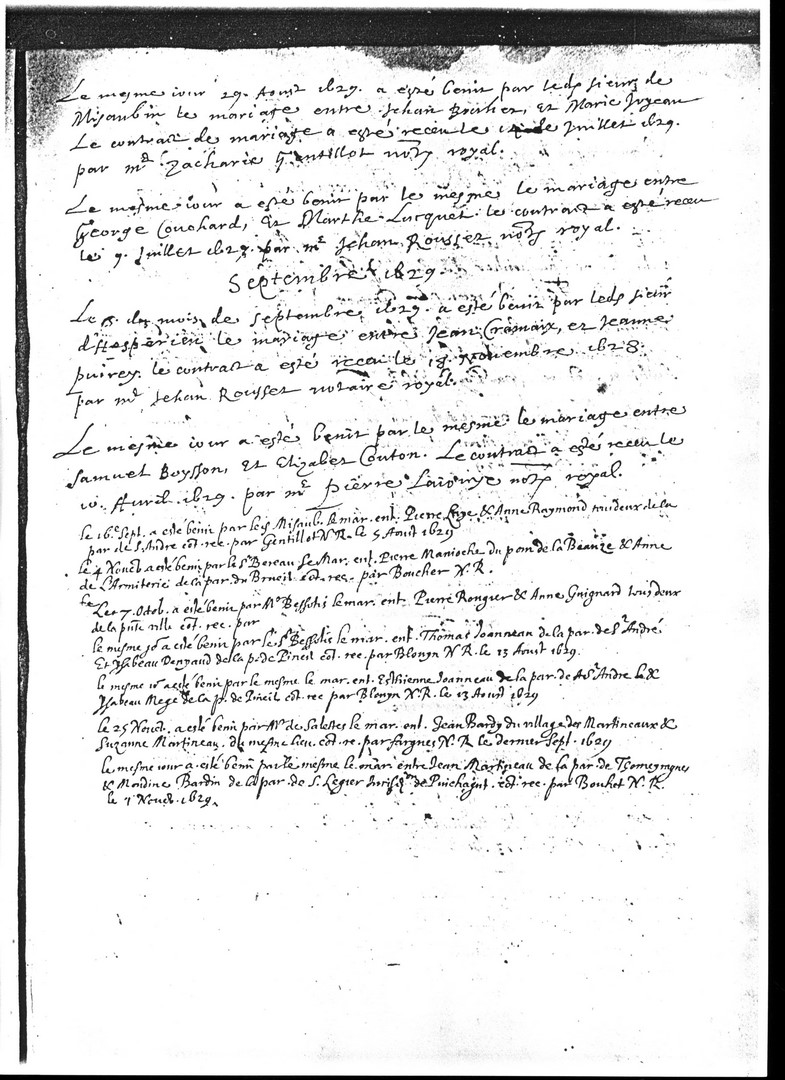 Le mesme iour 29. Aoust 1629. a esté benit par ledt sieur de
Misaubin le mariage entre Jehan et Marie
Le contract de mariage a esté receu le Juillet 1629.
par mr Zacharie Gentillot notre royal.
Le mesme iour a esté benit par le mesme le mariage entre
George Couchard, Et Marthe Lucquet le contract a esté receu
le 9. Juillet 1629. par me Jehan Rousset notre royal.
Septembre 1629.
Le du mois de Septembre 1629. a esté benit par ledt sieur
d'Hesperien le mariage entre Jean Cramaix, et Jeanne
puirey. le contract a esté receu le 18 Novembre 1628.
par mr Jehan Rousset notaire royal.
Le mesme iour a esté benit par le mesme le mariage entre
Samuel Boysson, Et Elizabet Couton. Le contract a esté receu le
Avril 1629. par me Pierre notre royal.
le 16e Sept. a esté benit par le sr Misaub. le mar. ent. Pierre & Anne Raymond tous deux de la
par de S. Andre cot. rec. par Gentillot N R. le 5 Aout 1629
le 4 Noueb a esté beni par le Sr Bereau le Mar. ent. Pierre Manioche du pom de la Beauze & Anne
de L'Armiterie de la par. du Breuil cot. rec. par Boucher N. R.
Le 7. Octob. a esté benit par Mr Bessotis le mar. ent. Pierre Rongier & Anne Guignard tous deux
de la pnte ville cot. rec. par
le mesme io a esté benit par le Sr Bessotis le mar. ent. Thomas Joanneau de la par. de St André
Et Ysabeau Denyaud de la p. de Pineil cot. rec. par Blouyn N R. le 13 Aoust 1629.
le mesme io a esté benit par le mesme le mar. ent. Esthienne Joanneau de la par. de St Andre &
Ysabeau Mege de la p. de Pineil cot. rec par Blouyn N R. le 13 Aoust 1629
le 25 Noueb. a esté benit par Mr de Salettes le mar. ent. Jean Bardy du village des Martineaux &
Suzanne Martineau. du mesme lieu. cot. re. par fargues N. R. le dernier Sept. 1629
le mesme iour a esté benit par le mesme le mar. entre Jean Martineau de la par. de
& Mondine Bardin de la par. de S. Legier Jurisdon de Puichagut. cot. rec. par Bouhet N. R.
le 7 Noueb. 1629.